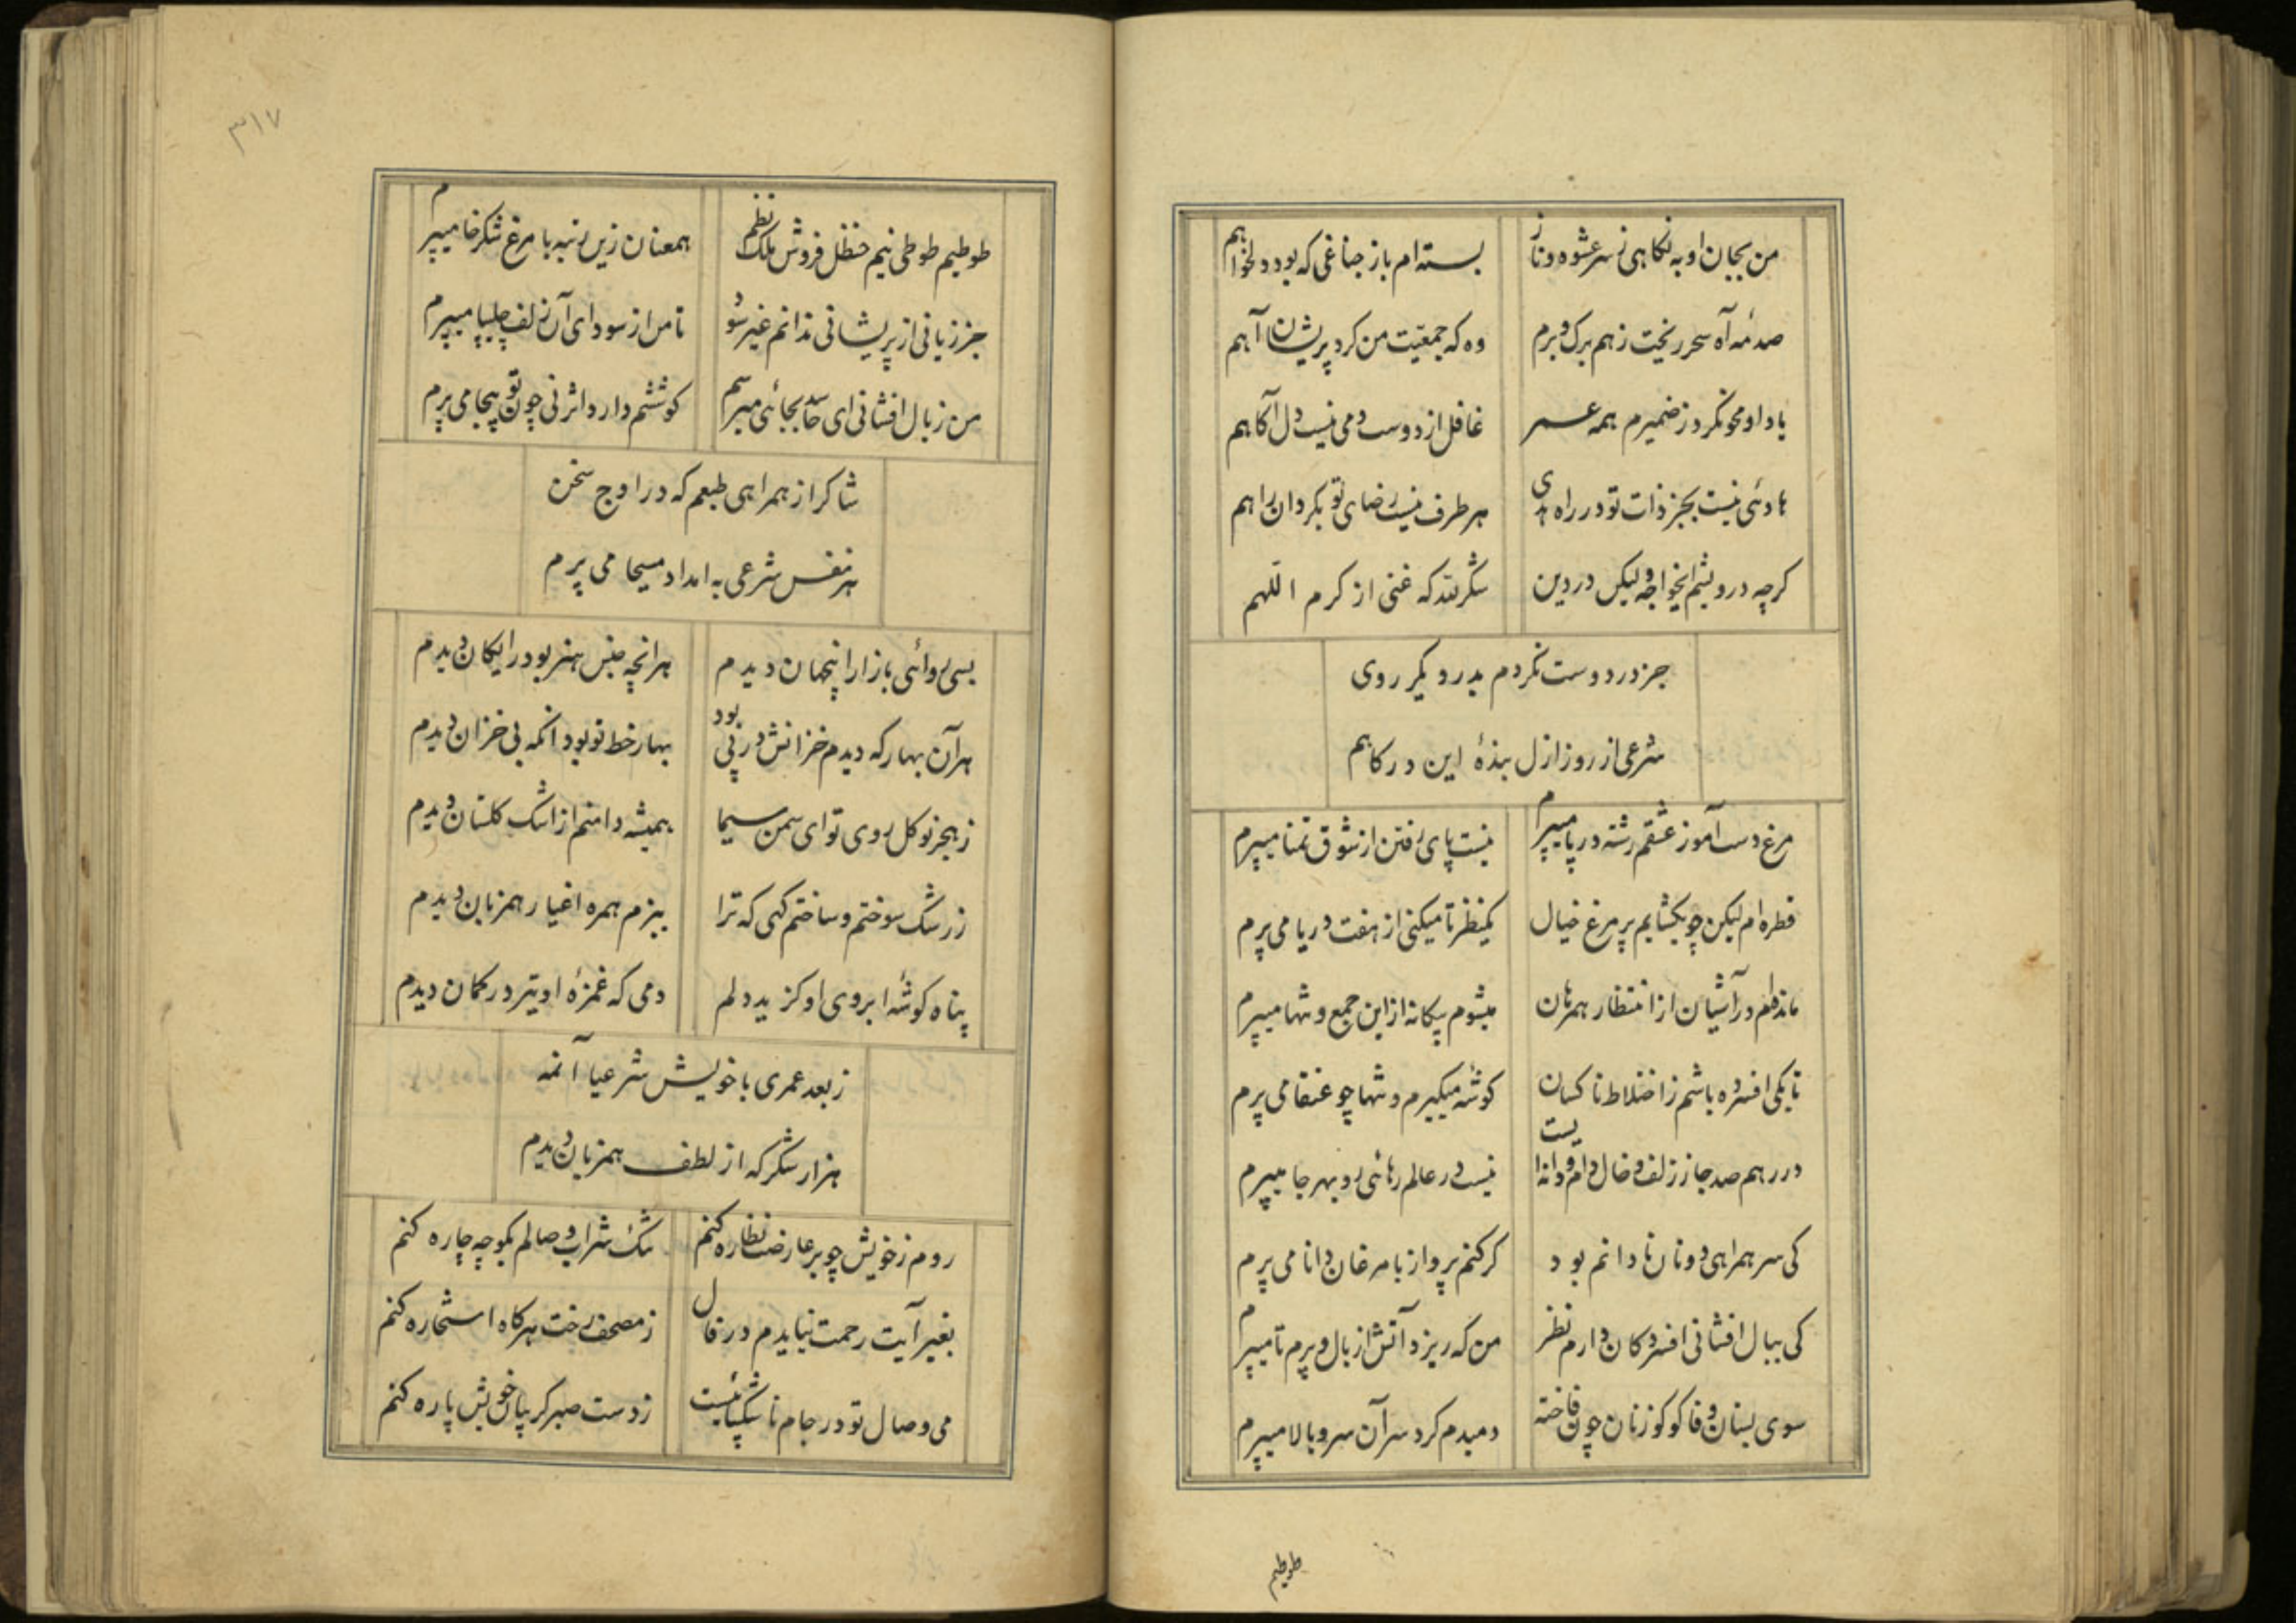 من بجان او به نگاهی ز سر عشوه و ناز
بسته ام باز جناغی که بود دلخواهم
صدمهٔ آه سحر ریخت ز هم برک و برم
وه که جمعیّت من کرد پریشان آهم
یاد او محو نکرد ز ضمیرم همه عمر
غافل از دوست دمی نیست دل آکاهم
هادئی نیست بجز ذات تو در راه هدی
هر طرف نیست رضای تو بکردان راهم
کرچه درویشم ایخواجه ولیکن در دین
شکر لله که غنی از کرم اللهم
جز در دوست نکردم بدر دیکر روی
شرعی از روز ازل بندهٔ این درکاهم
مرغ دست آموز عشقم رشته در پا میپرم
نیست پای رفتن از شوق تمنا میپرم
قطره ام لیکن چو بکشایم پر مرغ خیال
یکنظر تا میکنی از هفت دریا می پرم
مانده ام در آشیان از انتظار همرهان
میشوم بیکانه از این جمع و تنها میپرم
تا بکی افسرده باشم ز اختلاط ناکسان
کوشه میکیرم و تنها چو عنقا می پرم
در رهم صد جا ز زلف و خال دام و دانه ایست
نیست در عالم رهائی رو بهر جا میپرم
کی سر همراهی دونان نادانم بود
کر کنم پرواز با مرغان دانا می پرم
کی ببال افشانی افسردکان دارم نظر
من که ریزد آتش از بال و پرم تا میپرم
سوی بستان وفا کوکو زنان چون فاخته
دمبدم کرد سر آن سرو بالا میپرم
طوطیم
۳۱۷
طوطیم طوطی نیم حنظل فروش ملک نظم
همعنان زین رتبه با مرغ شکرخا میپرم
جز زیانی از پریشانی ندانم غیر سود
تا من از سودای آن زلف چلیپا میپرم
من ز بال افشانی ای حاسد بجائی میرسم
کوششم دارد اثر نی چون تو بیجا می پرم
شاکر از همراهی طبعم که در اوج سخن
هر نفس شرعی به امداد مسیحا می پرم
بسی روائی بازار اینجهان دیدم
هر انچه جنس هنر بود رایکان دیدم
هر آن بهار که دیدم خزانش در پی بود
بهار خط تو بود انکه بی خزان دیدم
ز هجر نو کل روی تو ای سمن سیما
همیشه دامنم از اشک کلستان دیدم
ز رشک سوختم و ساختم کهی که ترا
ببزم همره اغیار همزبان دیدم
پناه کوشهٔ ابروی او کزید دلم
دمی که غمزهٔ او تیر در کمان دیدم
ز بعد عمری با خویش شرعیا آنمه
هزار شکر که از لطف همزبان دیدم
روم ز خویش چو بر عارضت نظاره کنم
تنک شراب وصالم بکو چه چاره کنم
بغیر آیت رحمت نیایدم در فال
ز مصحف رخت هرکاه استخاره کنم
می وصال تو در جام ناشکیبائیست
ز دست صبر کریبان خویش پاره کنم